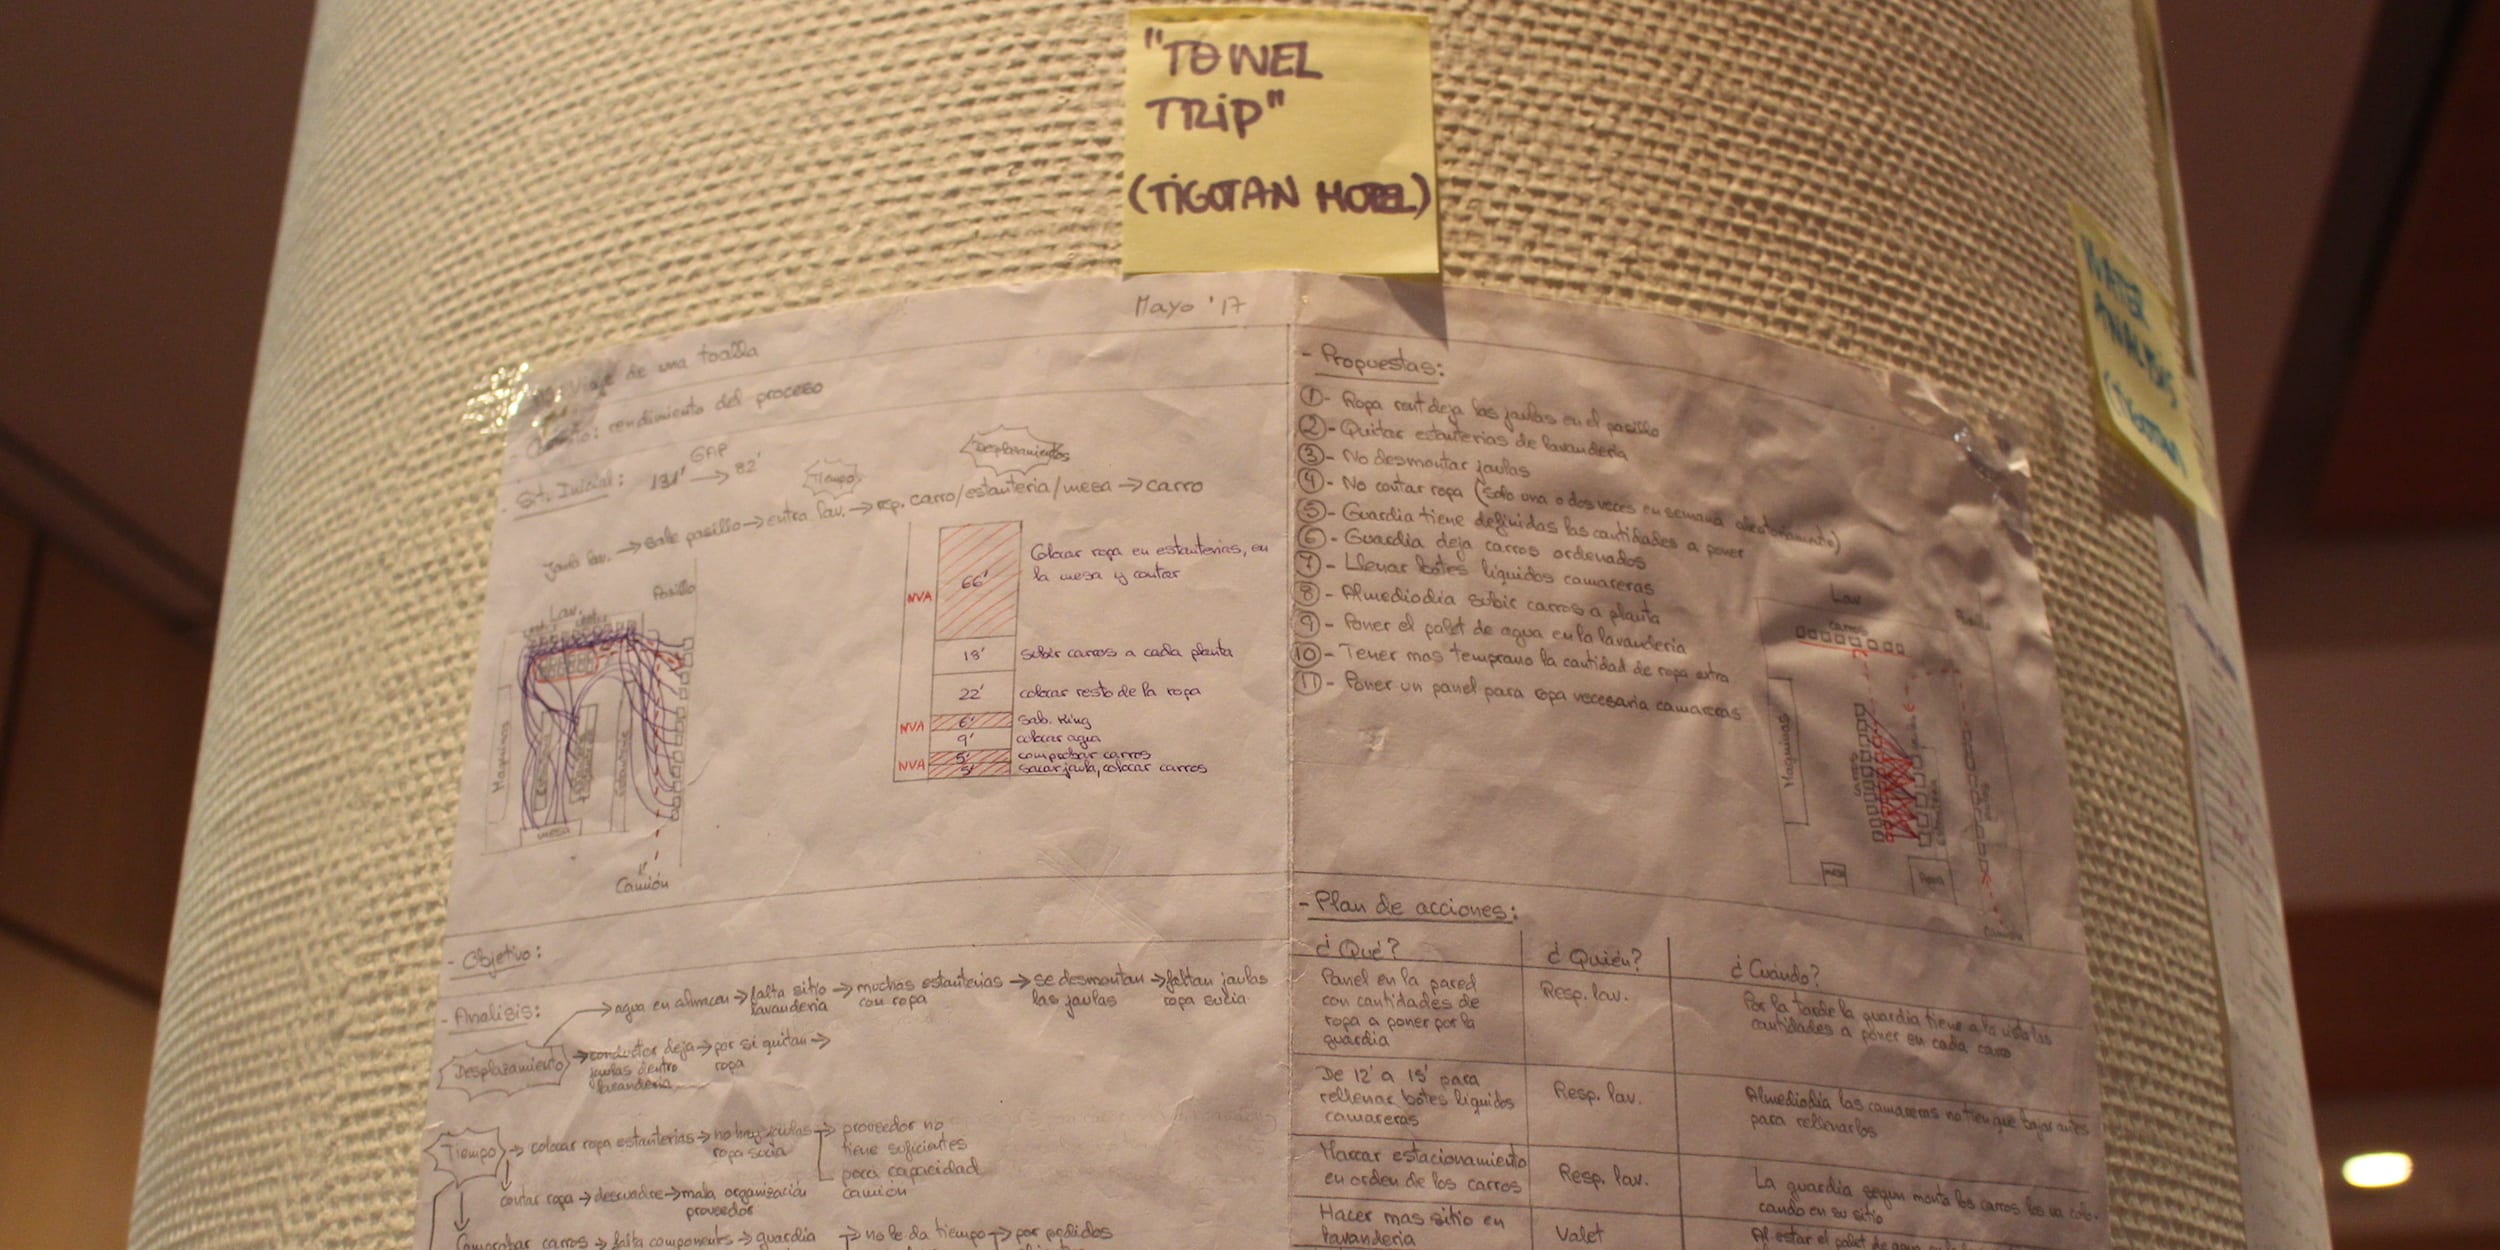 "TOWEL
TRIP"
(TIGOTAN HOTEL)
Mayo '17
Viaje de una toalla
rendimiento del proceso
Sit. Inicial: 131' GAP → 82'
Tiempo
Desplazamientos
Jaula lav. → sale pasillo → entra lav. → rep. carro/estantería/mesa → carro
Lav.
Pasillo
Maquinas
mesa
Camión
NVA
66'
Colocar ropa en estanterias, en
la mesa y contar
18'
subir carros a cada planta
22'
colocar resto de la ropa
NVA
6'
Sab. King
9'
colocar agua
NVA
5'
comprobar carros
5'
sacar jaula, colocar carros
- Objetivo:
- Analisis:
Desplazamiento
→ agua en almacen → falta sitio → muchas estanterias → se desmontan → faltan jaulas
lavanderia
con ropa
las jaulas
ropa sucia
→ conductor deja → por si quitan →
jaulas dentro
ropa
lavanderia
Tiempo
→ colocar ropa estanterias → no hay jaulas → proveedor no
ropa sucia
tiene suficientes
poca capacidad
camión
contar ropa → descuadre → mala organización
proveedor
Comprobar carros → falta components → guardia → no le da tiempo → por pedidos
- Propuestas:
①- Ropa rent deja las jaulas en el pasillo
②- Quitar estanterias de lavanderia
③- No desmontar jaulas
④- No contar ropa (solo una o dos veces en semana aleatoriamente)
⑤- Guardia tiene definidas las cantidades a poner
⑥- Guardia deja carros ordenados
⑦- Llenar botes liquidos camareras
⑧- Almediodia subir carros a planta
⑨- Poner el palet de agua en la lavanderia
⑩- Tener mas temprano la cantidad de ropa extra
⑪- Poner un panel para ropa necesaria camareras
Lav
carros
Maquinas
carros
mesa
Agua
- Plan de acciones:
¿Qué?
¿Quién?
¿Cuándo?
Panel en la pared
con cantidades de
ropa a poner por la
guardia
Resp. lav.
Por la tarde la guardia tiene a la vista las
cantidades a poner en cada carro
De 12' a 15' para
rellenar botes liquidos
camareras
Resp. lav.
Almediodia las camareras no tienen que bajar antes
para rellenarlos
Marcar estacionamiento
en orden de los carros
Resp. lav.
La guardia segun monta los carros los va colo-
cando en su sitio
Hacer mas sitio en
lavanderia
Valet
Al estar el palet de agua